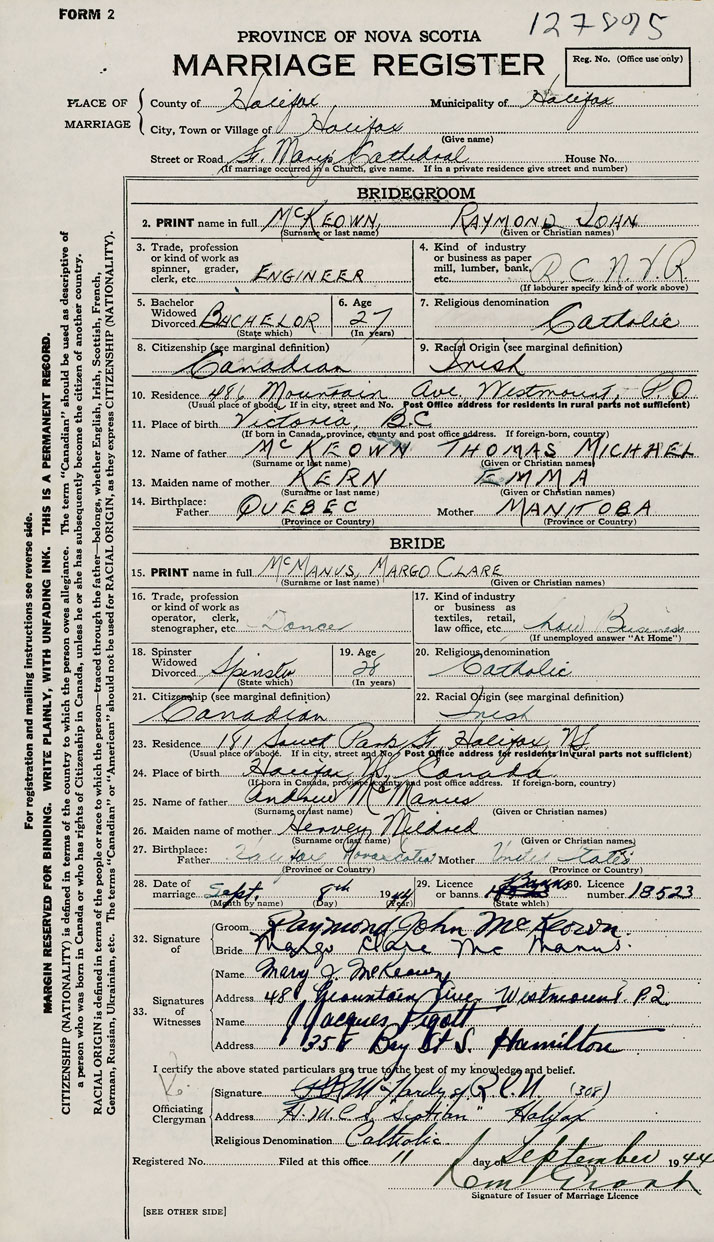 FORM 2
127895
PROVINCE OF NOVA SCOTIA
MARRIAGE REGISTER
Reg. No. (Office use only)
PLACE OF MARRIAGE
County of Halifax Municipality of Halifax
City, Town or Village of Halifax
(Give name)
Street or Road St. Mary's Cathedral House No.
(If marriage occurred in a Church, give name. If in a private residence give street and number)
BRIDEGROOM
2. PRINT name in full McKEOWN, RAYMOND JOHN
(Surname or last name) (Given or Christian names)
3. Trade, profession or kind of work as spinner, grader, clerk, etc. ENGINEER
4. Kind of industry or business as paper mill, lumber, bank, etc. R.C.N.V.R.
(If labourer specify kind of work above)
5. Bachelor Widowed Divorced BACHELOR
(State which)
6. Age 27
(In years)
7. Religious denomination Catholic
8. Citizenship (see marginal definition) Canadian
9. Racial Origin (see marginal definition) Irish
10. Residence 486 Mountain Ave Westmount, P.Q
(Usual place of abode. If in city, street and No. Post Office address for residents in rural parts not sufficient)
11. Place of birth Victoria, B.C
(If born in Canada, province, county and post office address. If foreign-born, country)
12. Name of father McKEOWN THOMAS MICHAEL
(Surname or last name) (Given or Christian names)
13. Maiden name of mother KERN EMMA
(Surname or last name) (Given or Christian names)
14. Birthplace: Father QUEBEC Mother MANITOBA
(Province or Country) (Province or Country)
BRIDE
15. PRINT name in full McMANUS, MARGO CLARE
(Surname or last name) (Given or Christian names)
16. Trade, profession or kind of work as operator, clerk, stenographer, etc. Dancer
17. Kind of industry or business as textiles, retail, law office, etc. Show Business
(If unemployed answer "At Home")
18. Spinster Widowed Divorced Spinster
(State which)
19. Age 28
(In years)
20. Religious denomination Catholic
21. Citizenship (see marginal definition) Canadian
22. Racial Origin (see marginal definition) Irish
23. Residence 191 South Park St. Halifax NS
(Usual place of abode. If in city, street and No. Post Office address for residents in rural parts not sufficient)
24. Place of birth Halifax N.S. Canada
(If born in Canada, province, county and post office address. If foreign-born, country)
25. Name of father Andrew McManus
(Surname or last name) (Given or Christian names)
26. Maiden name of mother Hervey Mildred
(Surname or last name) (Given or Christian names)
27. Birthplace: Father Halifax Nova Scotia Mother United States
(Province or Country) (Province or Country)
28. Date of marriage Sept. 8th 1944
(Month by name) (Day) (Year)
29. Licence or banns Banns
(State which)
30. Licence number 18523
32. Signature of
Groom Raymond John McKeown.
Bride Margo Clare McManus.
33. Signatures of Witnesses
Name Mary J. McKeown
Address 486 Mountain Ave Westmount P.Q.
Name Jacques Pigott
Address 358 Bay St S. Hamilton
I certify the above stated particulars are true to the best of my knowledge and belief.
Officiating Clergyman
Signature Hardy of R.C.N (308)
Address H.M.C.S. Halifax
Religious Denomination Catholic
Registered No. Filed at this office 11 day of September 1944
Signature of Issuer of Marriage Licence
[SEE OTHER SIDE]
For registration and mailing instructions see reverse side.
MARGIN RESERVED FOR BINDING. WRITE PLAINLY, WITH UNFADING INK. THIS IS A PERMANENT RECORD.
CITIZENSHIP (NATIONALITY) is defined in terms of the country to which the person owes allegiance. The term "Canadian" should be used as descriptive of
a person who was born in Canada or who has rights of Citizenship in Canada, unless he or she has subsequently become the citizen of another country.
RACIAL ORIGIN is defined in terms of the people or race to which the person—traced through the father—belongs, whether English, Irish, Scottish, French,
German, Russian, Ukrainian, etc. The terms "Canadian" or "American" should not be used for RACIAL ORIGIN, as they express CITIZENSHIP (NATIONALITY).